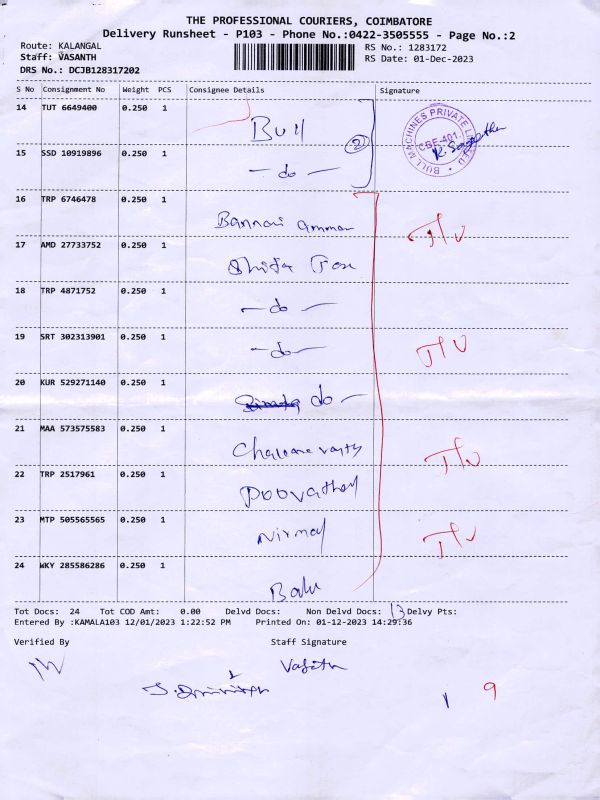 THE PROFESSIONAL COURIERS, COIMBATORE
Delivery Runsheet - P103 - Phone No.:0422-3505555 - Page No.:2
Route: KALANGAL
Staff: VASANTH
DRS No.: DCJB128317202
RS No.: 1283172
RS Date: 01-Dec-2023
S No Consignment No Weight PCS Consignee Details Signature
14 TUT 6649400 0.250 1 Bull
BULL MACHINES PRIVATE LIMITED
CBE-401.
2
15 SSD 10919896 0.250 1 - do -
16 TRP 6746478 0.250 1 Bannari amman
17 AMD 27733752 0.250 1
18 TRP 4871752 0.250 1 - do -
19 SRT 302313901 0.250 1 - do -
20 KUR 529271140 0.250 1 do -
21 MAA 573575583 0.250 1
22 TRP 2517961 0.250 1
23 MTP 505565565 0.250 1 Nirmal
24 WKY 285586286 0.250 1 Balu
Tot Docs: 24 Tot COD Amt: 0.00 Delvd Docs: Non Delvd Docs: 13 Delvy Pts:
Entered By :KAMALA103 12/01/2023 1:22:52 PM Printed On: 01-12-2023 14:29:36
Verified By Staff Signature
1 9